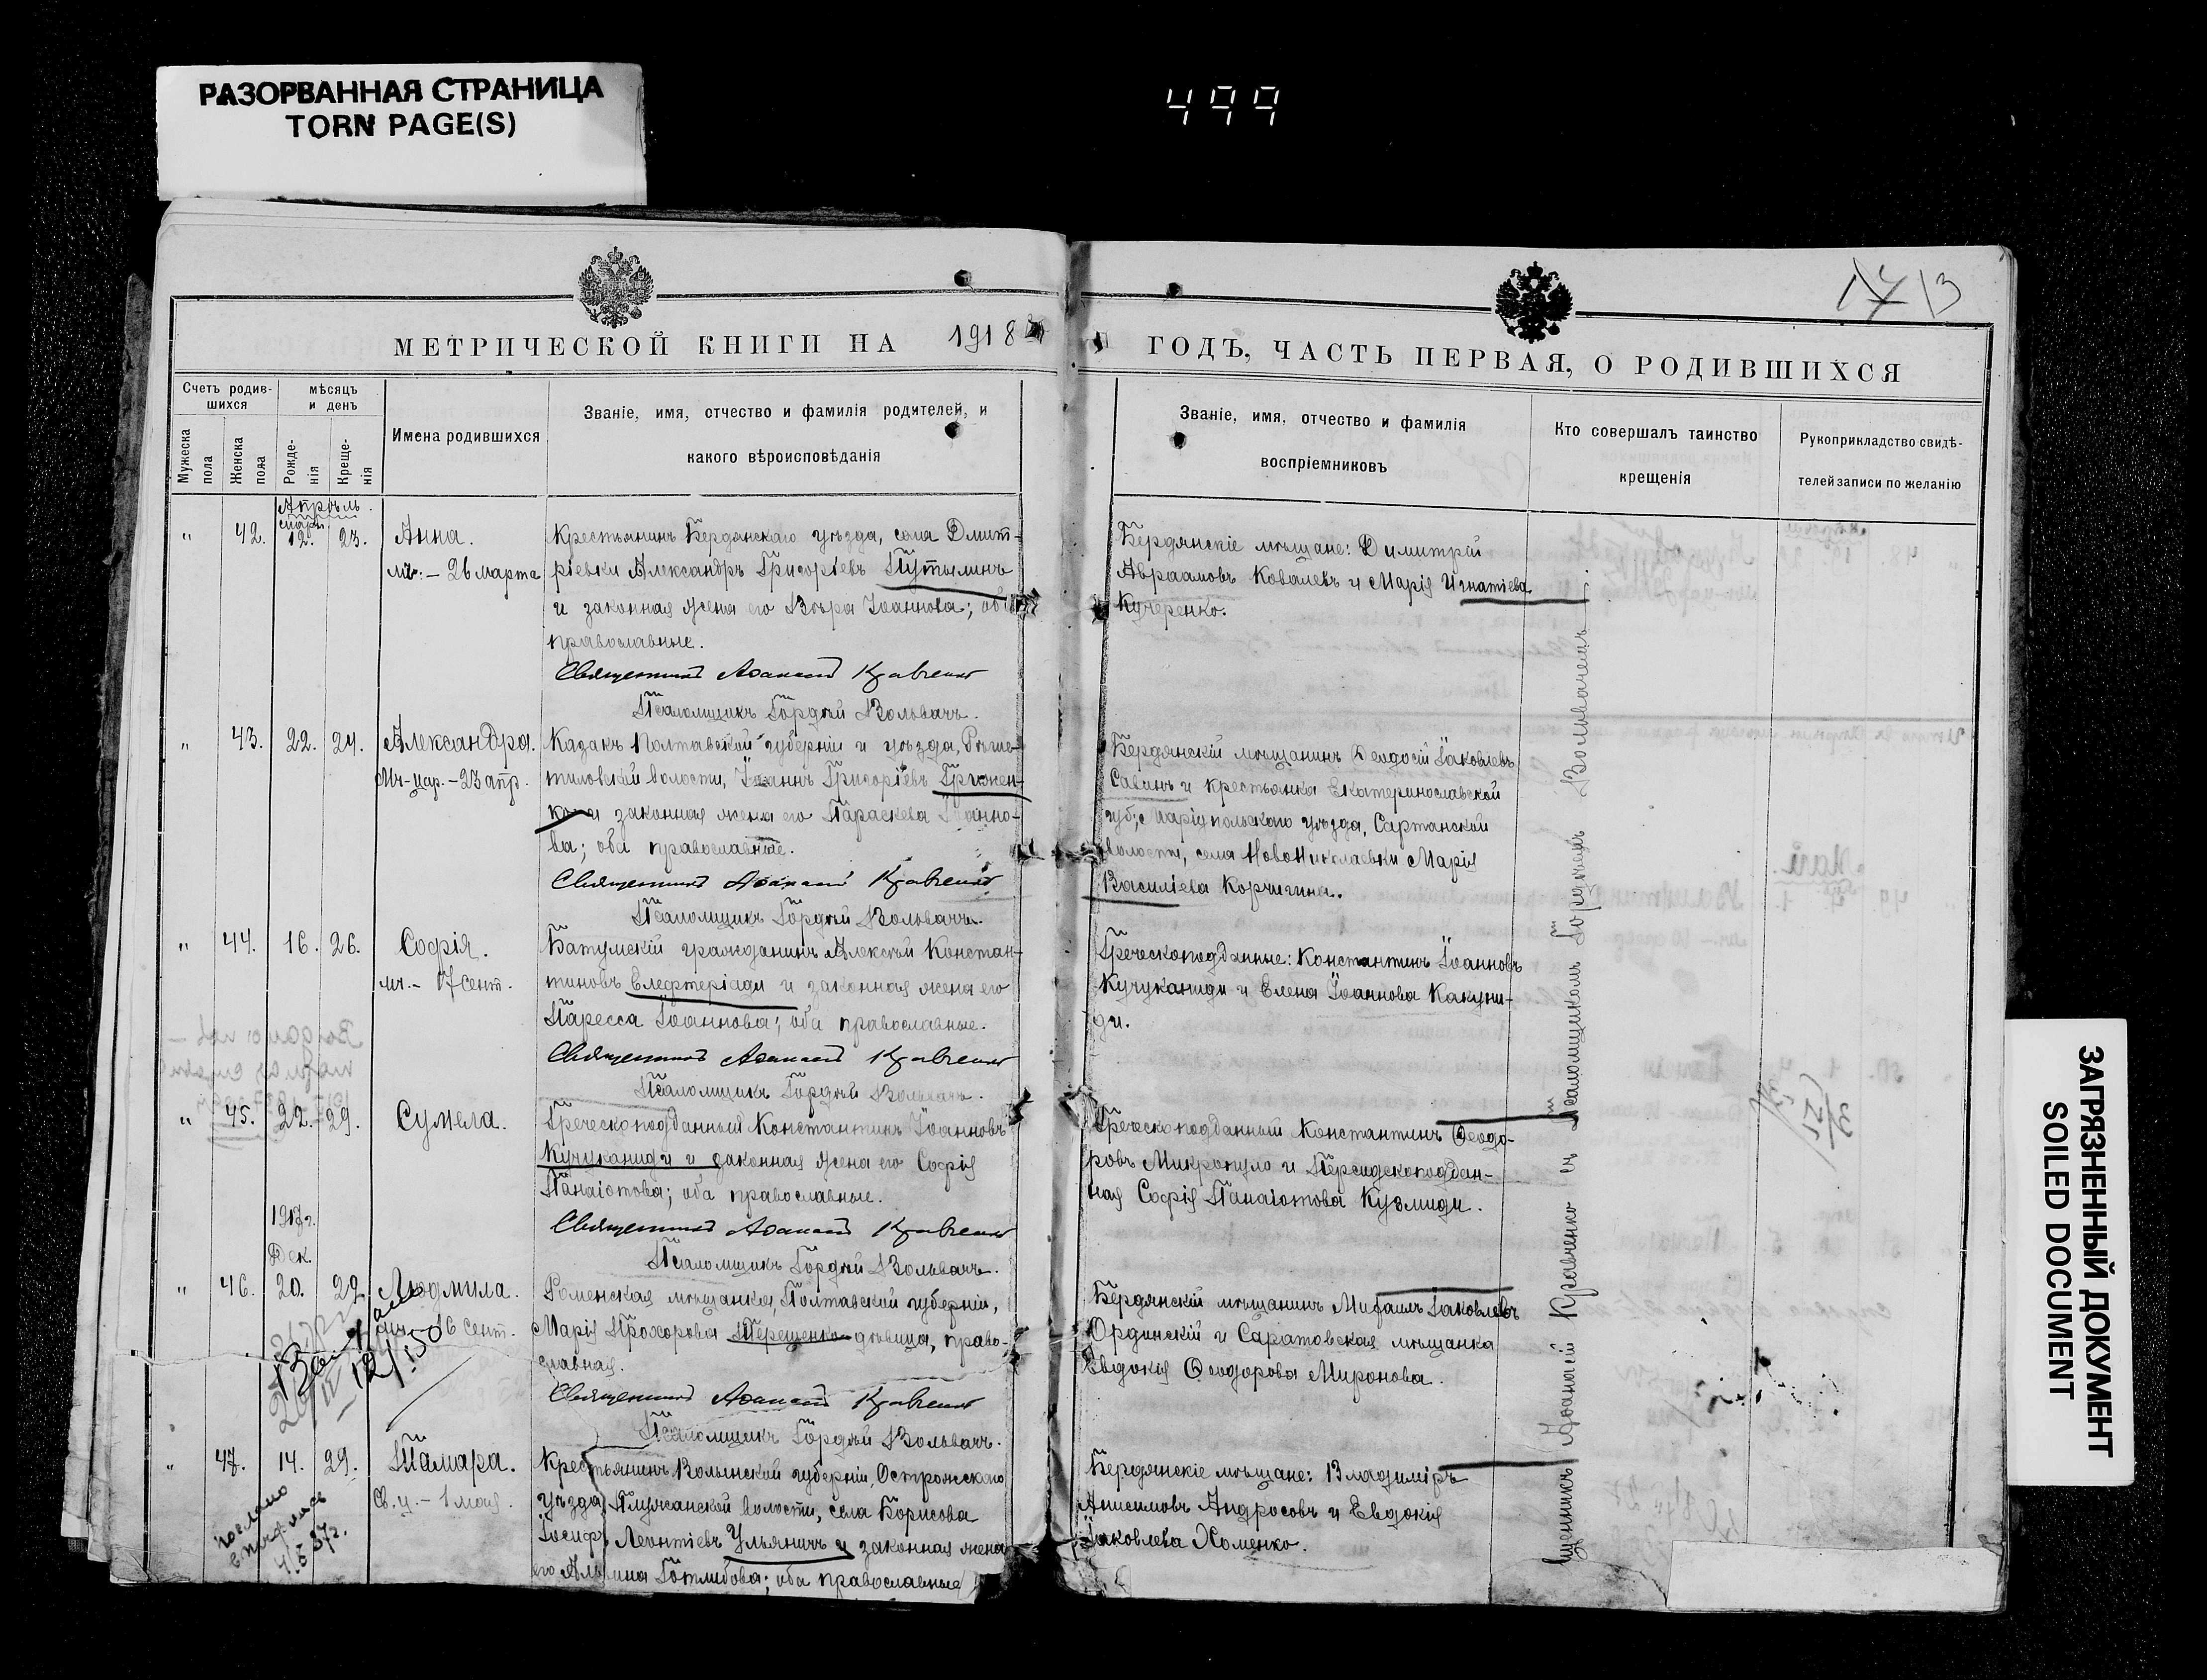 РАЗОРВАННАЯ СТРАНИЦА
TORN PAGE(S)
499
1713
МЕТРИЧЕСКОЙ КНИГИ НА 1918
ГОДЪ, ЧАСТЬ ПЕРВАЯ, О РОДИВШИХСЯ
Счетъ родив-
шихся
мѣсяцъ
и день
Мужеска
пола
Женска
пола
Рожде-
нія
Креще-
нія
Имена родившихся
Званіе, имя, отчество и фамилія родителей, и
какого вѣроисповѣданія
Званіе, имя, отчество и фамилія
воспріемниковъ
Кто совершалъ таинство
крещенія
Рукоприкладство свидѣ-
телей записи по желанію
Апрѣль.
" 42. 12. 23. Анна.
мч. - 26 марта
Крестьянинъ Бердянскаго уѣзда, села Дмит-
ріевки Александръ Григоріевъ Путылинъ
и законная жена его Вѣра Іоаннова; оба
православные.
Священникъ Аѳанасій Кравченко
Псаломщикъ Гордѣй Вольвачъ.
Бердянскіе мѣщане: Димитрій
Авраамовъ Ковалевъ и Марія Игнатіева
Кучеренко.
" 43. 22. 24. Александра.
Мч-цар. - 23 апр.
Казакъ Полтавской губерніи и уѣзда, Рѣше-
тиловской волости, Іоаннъ Григоріевъ Гринен-
ко и законная жена его Параскева Іоанно-
ва; оба православные.
Священникъ Аѳанасій Кравченко
Псаломщикъ Гордѣй Вольвачъ.
Бердянскій мѣщанинъ Ѳеодосій Іаковлевъ
Савинъ и крестьянка Екатеринославской
губ., Маріупольскаго уѣзда, Сартанской
волости, села НовоНиколаевки Марія
Василіева Корчигина.
" 44. 16. 26. Софія.
мч. - 17 сент.
Батумскій гражданинъ Алексѣй Констан-
тиновъ Елефтеріади и законная жена его
Паресса Іоаннова; оба православные.
Священникъ Аѳанасій Кравченко
Псаломщикъ Гордѣй Вольвачъ.
Греческоподданные: Константинъ Іоанновъ
Кучуканиди и Елена Іоаннова Какуни-
ди.
" 45. 22. 29. Сумела.
Греческоподданный Константинъ Іоанновъ
Кучуканиди и законная жена его Софія
Панаіотова; оба православные.
Священникъ Аѳанасій Кравченко
Псаломщикъ Гордѣй Вольвачъ.
Греческоподданный Константинъ Ѳеодо-
ровъ Микропуло и Персидскоподдан-
ная Софія Панаіотова Кузмиди.
1917 г.
Дек.
" 46. 20. 29. Людмила.
16 сент.
Роменская мѣщанка, Полтавской губерніи,
Марія Прохорова Терещенко дѣвица, право-
славная.
Священникъ Аѳанасій Кравченко
Псаломщикъ Гордѣй Вольвачъ.
Бердянскій мѣщанинъ Михаилъ Іаковлевъ
Ординскій и Саратовская мѣщанка
Евдокія Ѳеодорова Миронова.
" 47. 14. 29. Тамара.
Св. ц. - 1 мая.
Крестьянинъ Волынской губерніи, Острожскаго
уѣзда, Плужанской волости, села Борисова
Іосифъ Леонтіевъ Ульяничъ и законная жена
его Альвина Готлибова; оба православные
Бердянскіе мѣщане: Владиміръ
Анисимовъ Андросовъ и Евдокія
Іаковлева Хоменко.
щенникъ Аѳанасій Кравченко съ Псаломщикомъ Гордѣемъ Вольвачемъ
ЗАГРЯЗНЕННЫЙ ДОКУМЕНТ
SOILED DOCUMENT